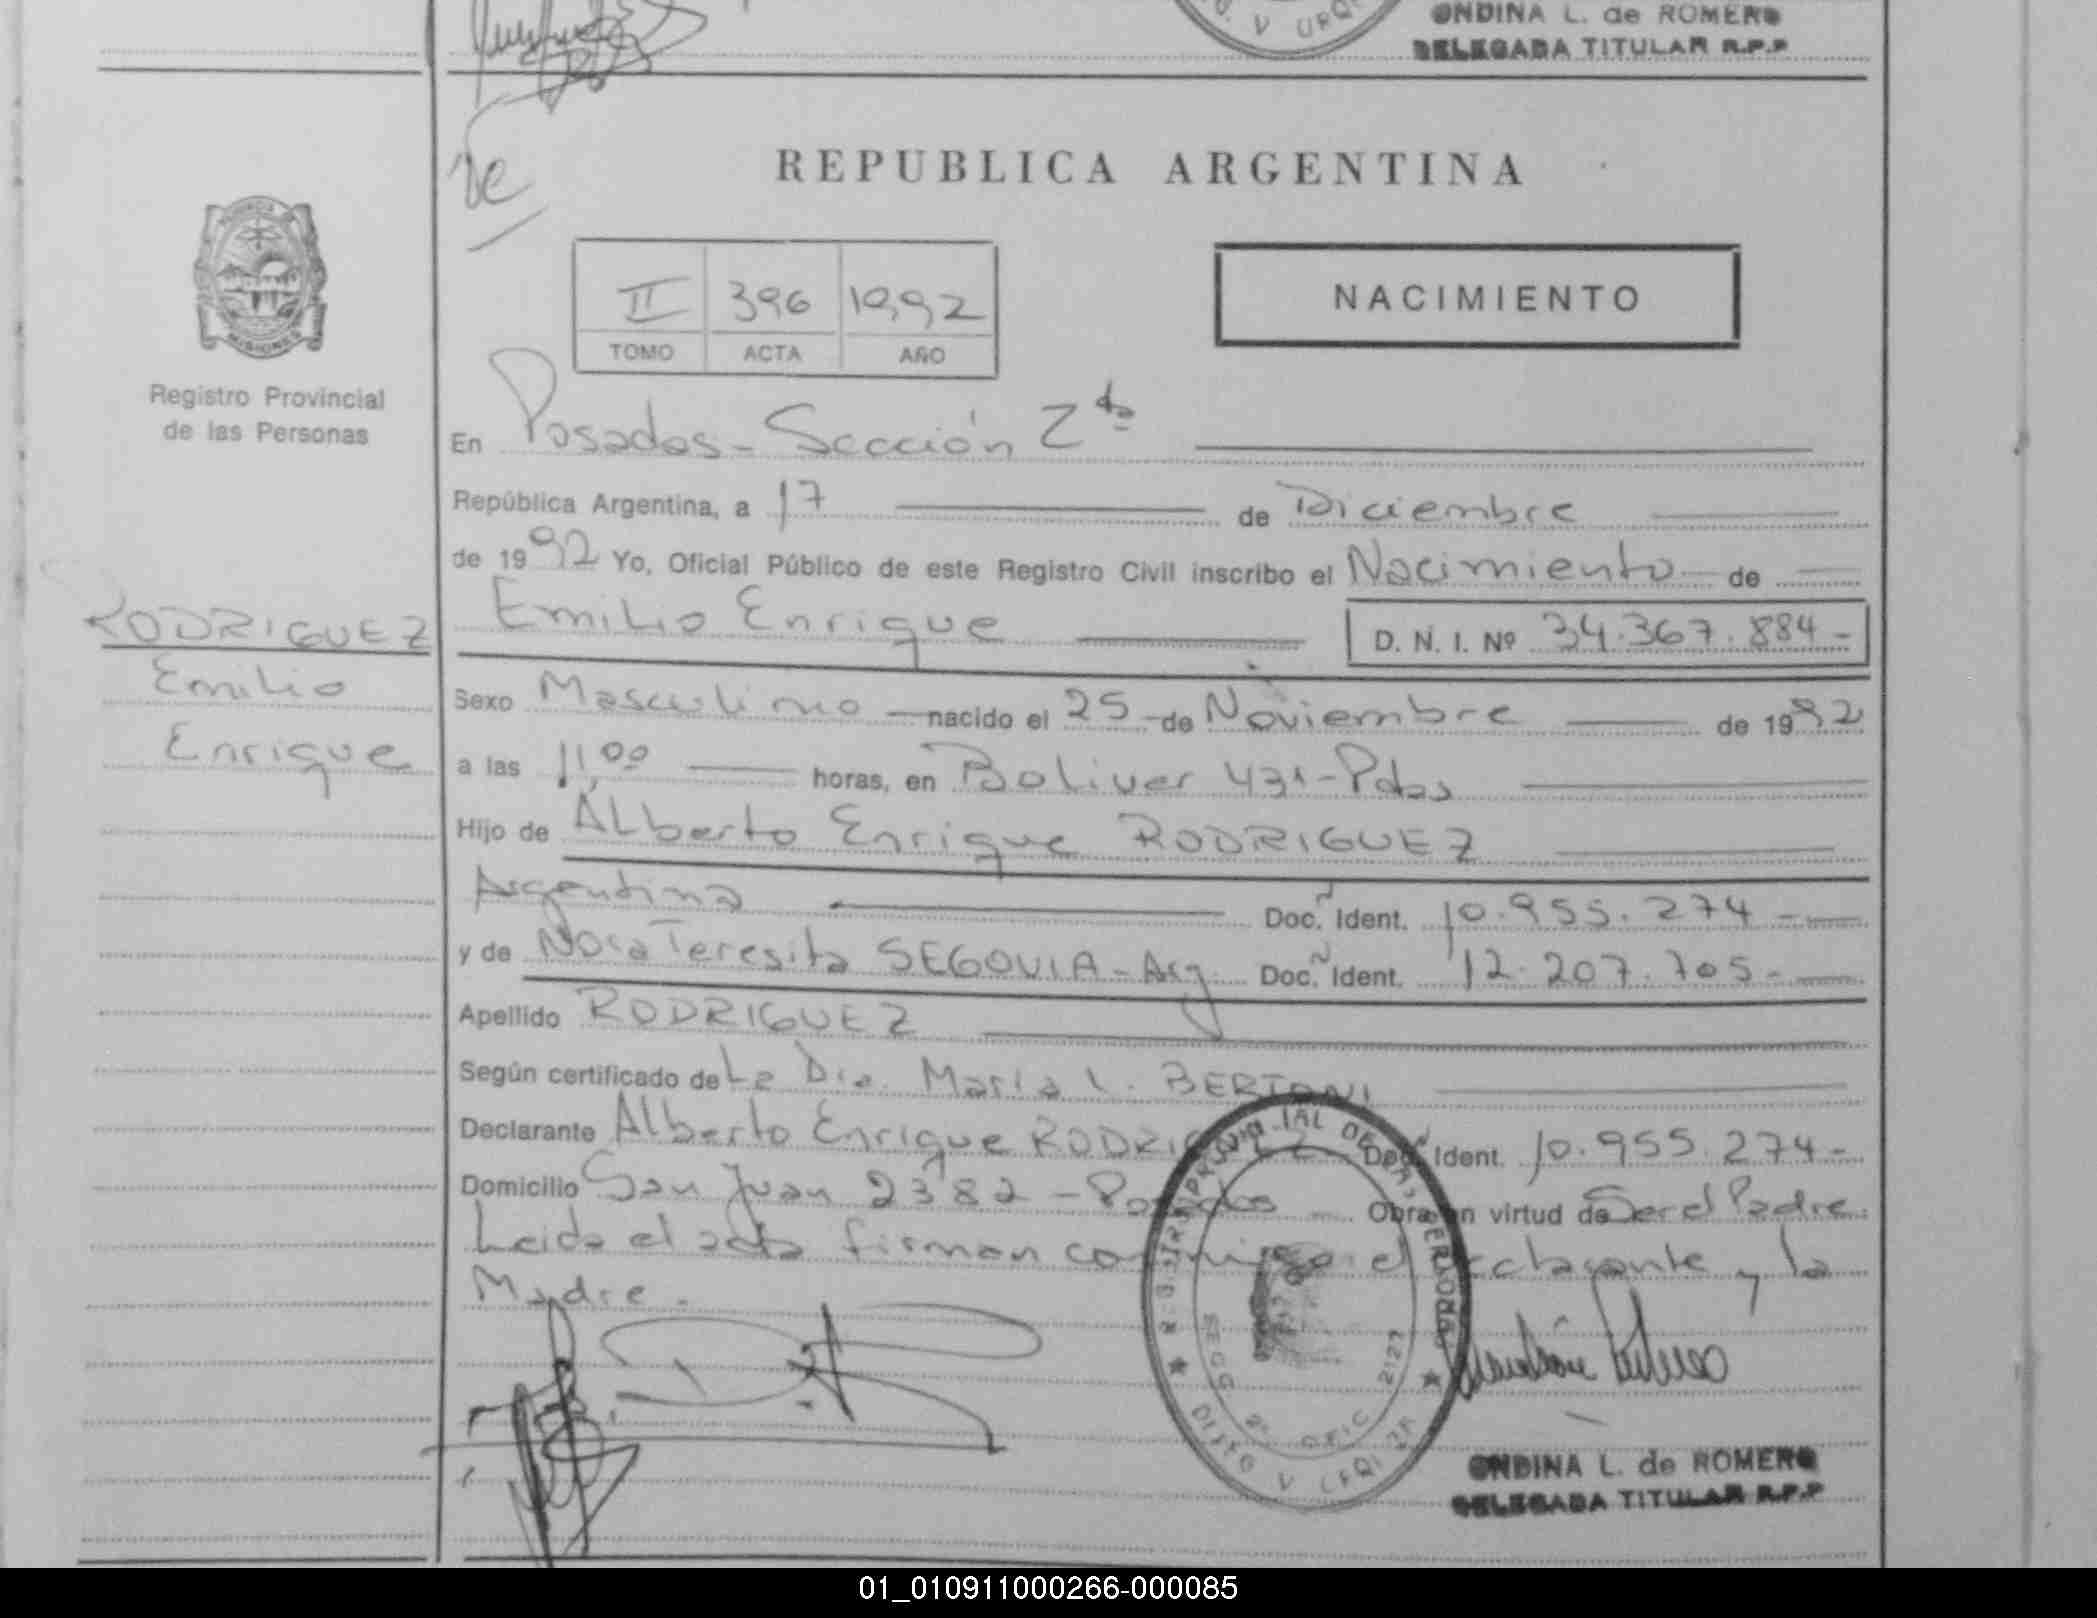 ONDINA L. de ROMERO
DELEGADA TITULAR R.P.P
REPUBLICA ARGENTINA
II 396 1992
TOMO ACTA AÑO
NACIMIENTO
MISIONES
Registro Provincial
de las Personas
En Posadas - Sección 2da
República Argentina, a 17 de Diciembre
de 1992 Yo, Oficial Público de este Registro Civil inscribo el Nacimiento de
RODRIGUEZ
Emilio
Enrique
Emilio Enrique D. N. I. Nº 34.367.884-
Sexo Masculino nacido el 25 de Noviembre de 1992
a las 11,00 horas, en Bolivar 431 - Pdas
Hijo de Alberto Enrique RODRIGUEZ
Argentina Doc. Ident. 10.955.274
y de Nora Teresita SEGOVIA - Arg. Doc. Ident. 12.207.705-
Apellido RODRIGUEZ
Según certificado de La Dra. Maria L. BERTONI
Declarante Alberto Enrique RODRIGUEZ Doc. Ident. 10.955.274-
Domicilio San Juan 2382 - Posadas Obra en virtud de Ser el Padre.
Leida el acta firman conmigo el declarante y la
Madre.
ONDINA L. de ROMERO
DELEGADA TITULAR R.P.P
01_010911000266-000085